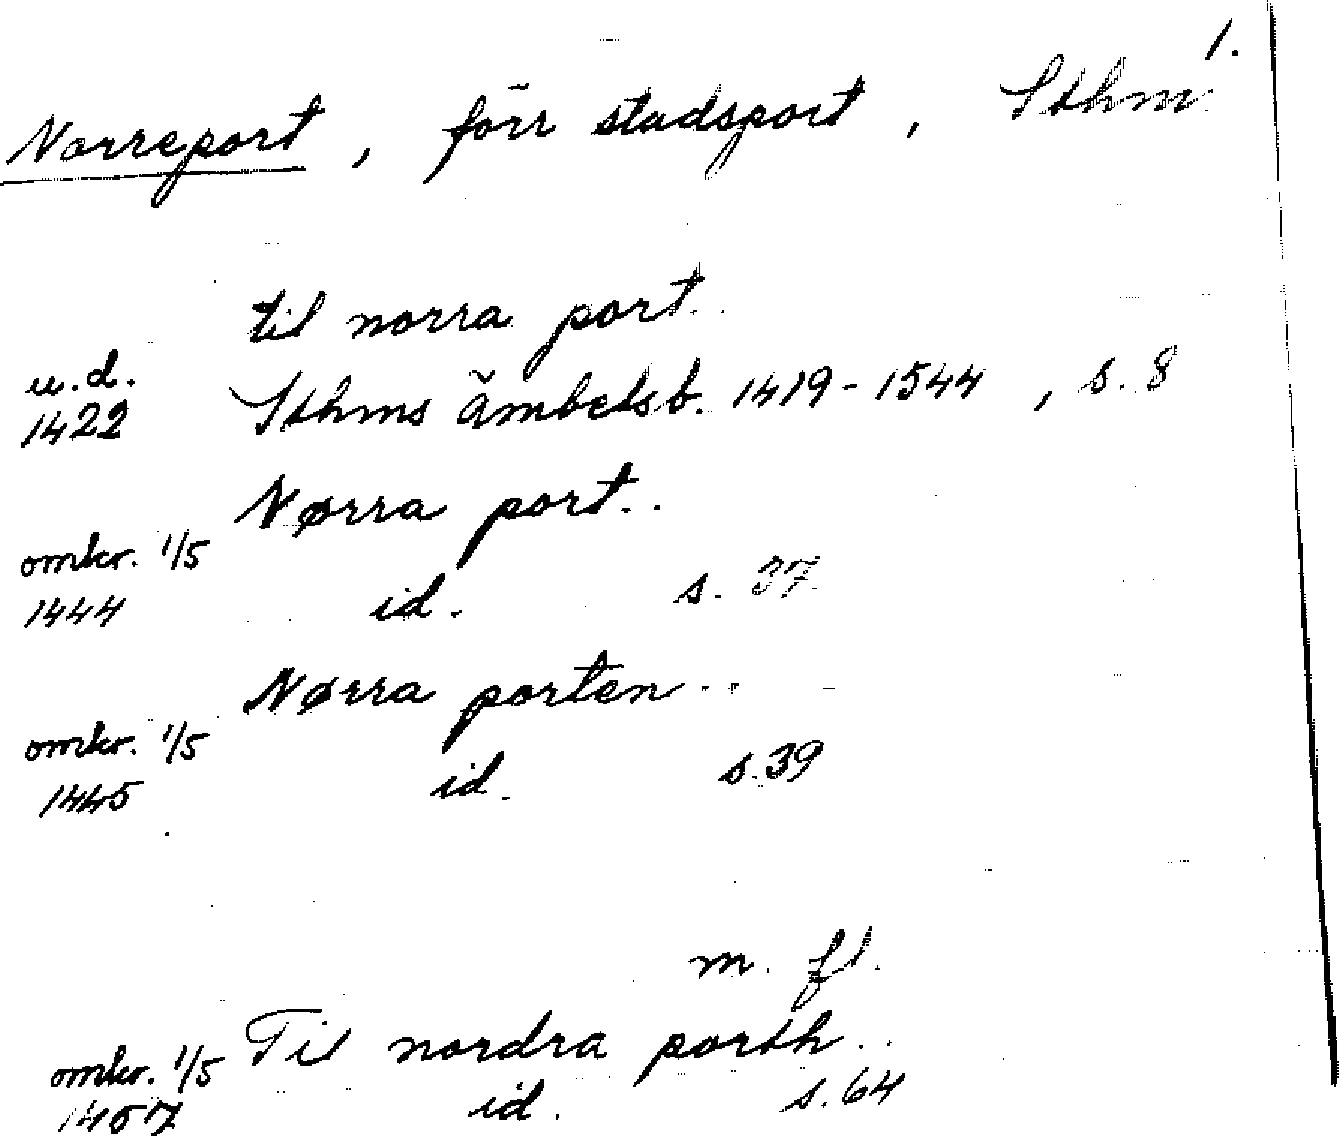 1.
Norreport, förr stadsport, Sthm
til norra port..
u.d.
1422 Sthms ämbetsb. 1419-1544, s. 8
Nørra port..
omkr. 1/5
1444 id. s. 37
Nørra porten..
omkr. 1/5
1445 id. s. 39
m. fl.
Til nordra porth..
omkr. 1/5
1457 id. s. 64